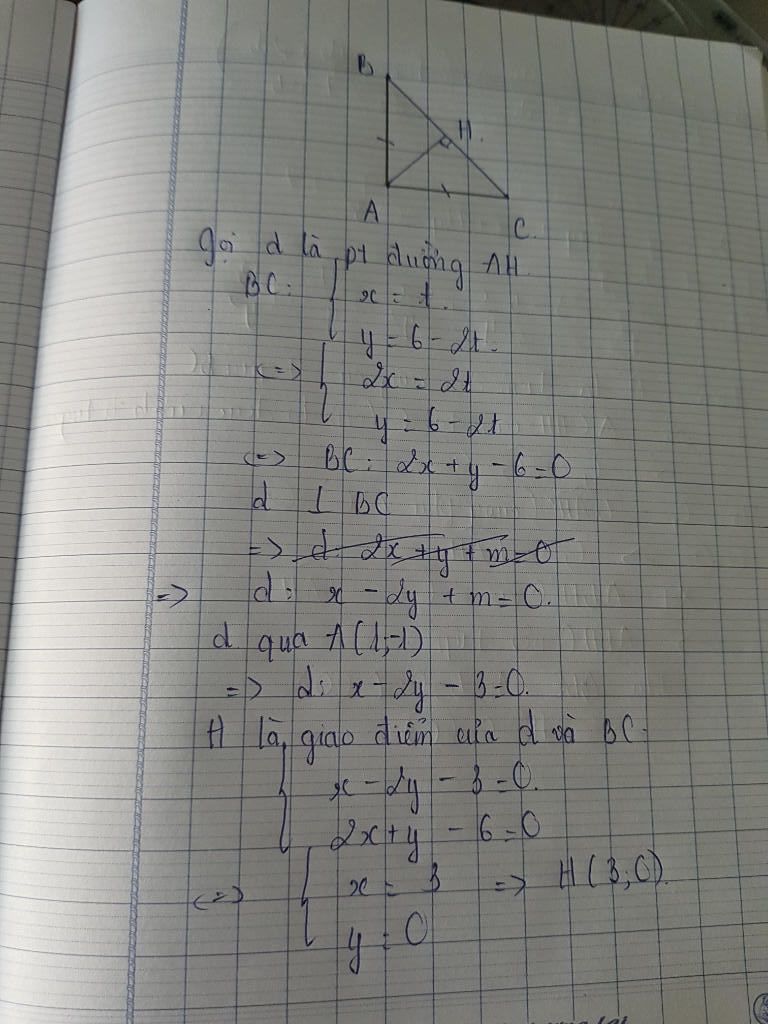 B
H.
A
C.
Gọi d là pt đường AH.
BC: { x = t.
y = 6 - 2t.
<=> { 2x = 2t
y = 6 - 2t
<=> BC: 2x + y - 6 = 0
d ⊥ BC
=> d: 2x + y + m = 0
=> d: x - 2y + m = 0.
d qua A(1;-1)
=> d: x - 2y - 3 = 0.
H là giao điểm của d và BC.
{ x - 2y - 3 = 0.
2x + y - 6 = 0
<=> { x = 3 => H(3;0).
y = 0